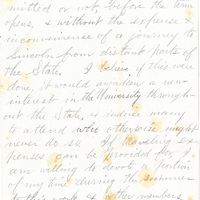 mitted or not, before the term
opens, & without the expense &
inconvenience of a journey to
Lincoln from distant parts of
the State. I believe if this were
done, it would awaken a new
interest in the University through-
out the State, & induce many
to attend who otherwise might
never do so. If traveling ex-
penses can be provided for, I
am willing to devote a portion
of my time during the summer
to this work, & other members